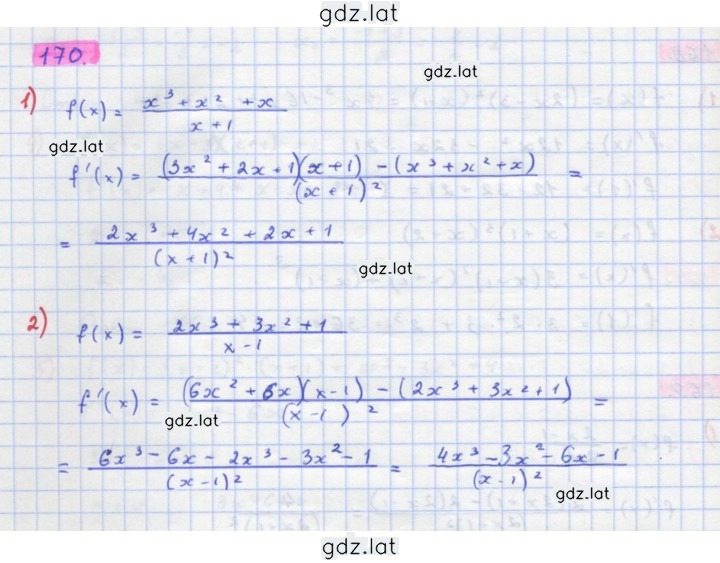 gdz.lat
170.
gdz.lat
1) f(x) = (x³ + x² + x)/(x + 1)
gdz.lat
f'(x) = ((3x² + 2x + 1)(x + 1) - (x³ + x² + x))/(x + 1)² =
= (2x³ + 4x² + 2x + 1)/(x + 1)²
gdz.lat
2) f(x) = (2x³ + 3x² + 1)/(x - 1)
f'(x) = ((6x² + 6x)(x - 1) - (2x³ + 3x² + 1))/(x - 1)² =
gdz.lat
= (6x³ - 6x - 2x³ - 3x² - 1)/(x - 1)² = (4x³ - 3x² - 6x - 1)/(x - 1)²
gdz.lat
gdz.lat